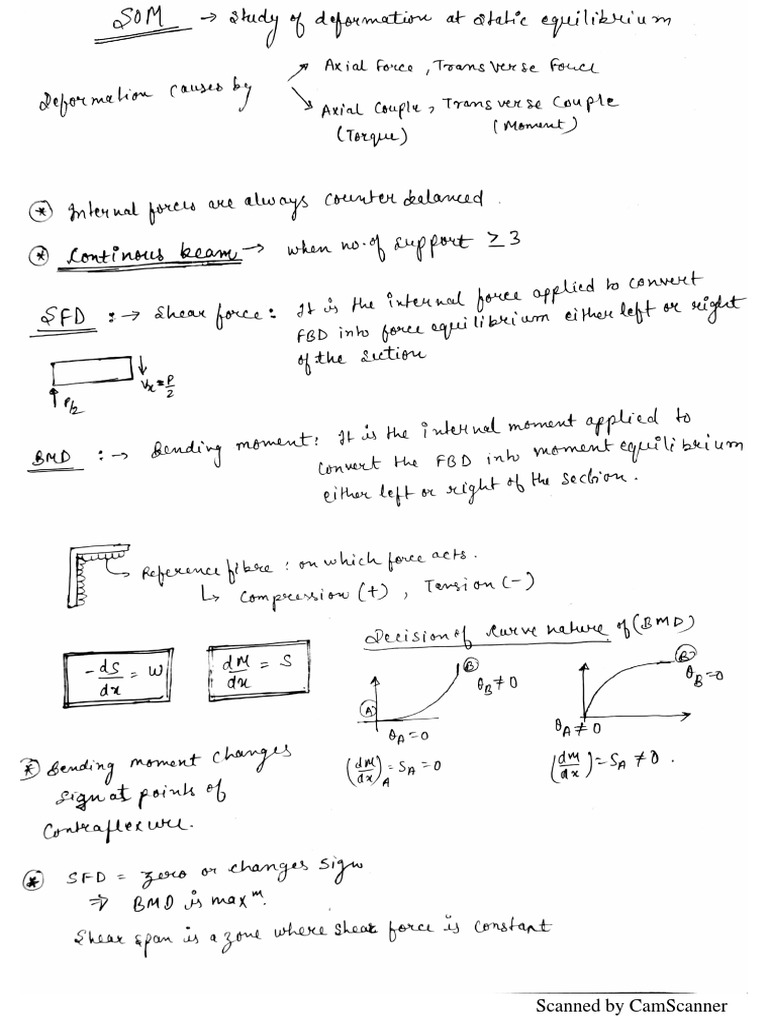 SOM → Study of deformation at static equilibrium
Deformation causes by
Axial Force, Transverse Force
Axial Couple, Transverse Couple
(Torque) (Moment)
* Internal forces are always counter balanced.
* Continous beam → when no. of support ≥ 3
SFD :→ Shear force: It is the internal force applied to convert
FBD into force equilibrium either left or right
of the section
Vx = P/2
P/2
BMD :→ Bending moment: It is the internal moment applied to
convert the FBD into moment equilibrium
either left or right of the section.
Reference fibre : on which force acts.
↳ Compression (+), Tension (-)
Decision of curve nature of (BMD)
-dS/dx = W
dM/dx = S
A
B
θB ≠ 0
θA = 0
(dM/dx)A = SA = 0
B
θB = 0
θA ≠ 0
(dM/dx) = SA ≠ 0.
* Bending moment changes
sign at points of
Contraflexure.
* SFD = zero or changes sign
⇒ BMD is maxm.
Shear span is a zone where shear force is constant
Scanned by CamScanner